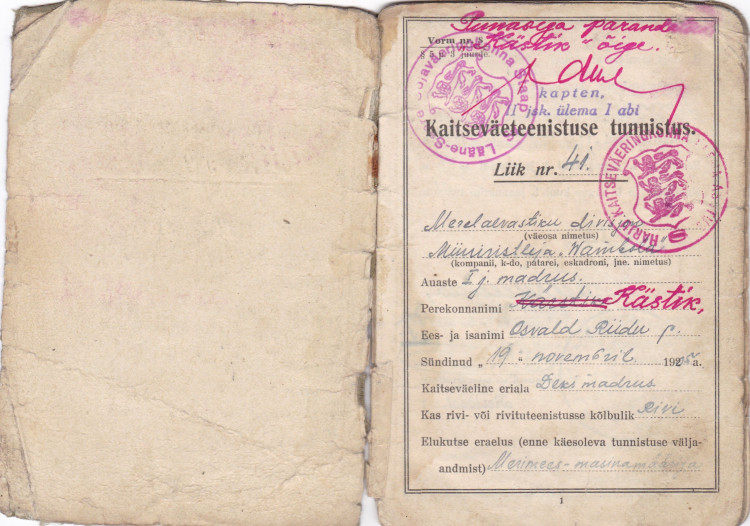 Punasega parandatud
Vorm nr. 8
"Kästik" õige.
§ 5 ja 3 juurde.
kapten,
II jsk. ülema I abi
Kaitseväeteenistuse tunnistus.
Liik nr. 41.
Merelaevastiku divisjon
(väeosa nimetus)
Miiniristleja "Wambola"
(kompanii, k-do, patarei, eskadroni, jne. nimetus)
Auaste I j. madrus.
Perekonnanimi Kästik,
Ees- ja isanimi Osvald Riidu p.
Sündinud „ 19 " novembril 19 a.
Kaitseväeline eriala Deki madrus
Kas rivi- või rivituteenistusse kõlbulik rivi
Elukutse eraelus (enne käesoleva tunnistuse välja-
andmist) Merimees-
1
HARJU KAITSEVÄERINGKONNA